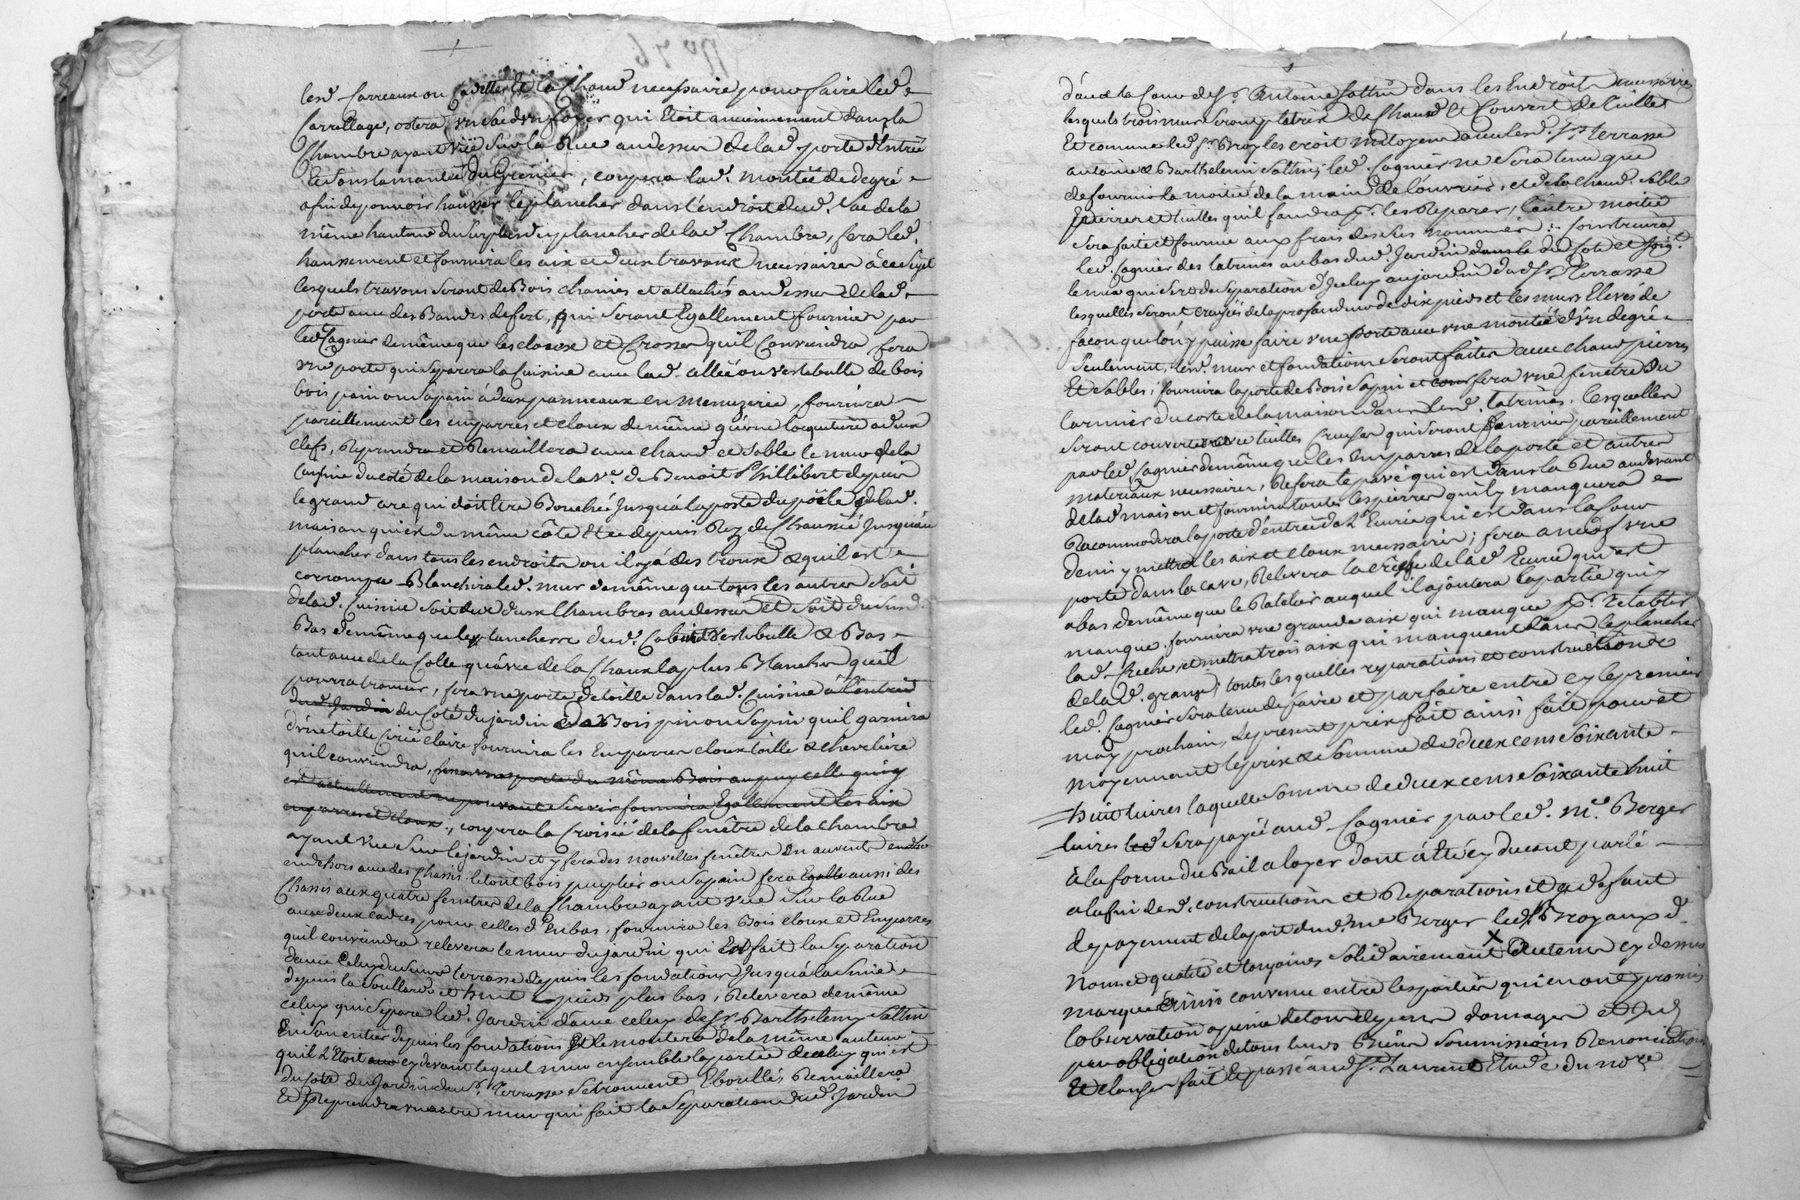 lesd. Carreaux ou Cadettes et la Chaux necessaire pour faire led.
Carrellage, ostera un foyer qui Etoit anciennement dans la
Chambre ayant vüe sur la Rüe au dessus de lad. porte d'Entrée
Et sous la montée du Grenier, coupera lad. montée de degré
afin de pouvoir hausser le plancher dans l'endroit dud. de la
même hauteur du surplus du plancher de lad. Chambre, fera led.
haussement et fournira les aix et deux travons necessaires à ce sujet
lesquels travons seront de Bois chaines et attachés au dessus de lad.
porte avec des Bandes de fert, qui seront Egallement fournies par
led. Sagnier de même que les cloux et Crosses qu'il Conviendra fera
une porte qui separera la Cuisine avec lad. allée ou vestebulle de bois
bois pain ou sapain à deux panneaux en Menuzerie, fournira
pareillement les emparres et cloux de même qu'une loqueture a deux
clefs, Reprendra et Remaillera avec chaux et sable le mur de la
Cuisine du côté de la maison de la ve. de Benoit Phillibert depuis
le grand arc qui doit être Bouché Jusqu'à la porte du poële de lad.
maison qui est du même côté et ce depuis Rez de Chaussée Jusqu'au
plancher dans tous les endroits ou il y a des troux & qu'il est
corrompu Blanchira led. mur de même que tous les autres soit
de lad. Cuisine soit des deux Chambres au dessus et soit du
Bas de même que les plancherre dud. Cabinet vestebulle & Bas
tant avec de la Colle qu'avec de la Chaux la plus Blanche qu'il
pourra trouver, fera une porte de toille dans lad. Cuisine à l'entrée
dud. Jardin du Coté du jardin de Bois pin ou sapin qu'il garnira
d'une toille Cirée claire fournira les Emparres cloux toille & cheveliere
qu'il conviendra, fera une porte du même Bois au puy celle qui y
est actuellement ne pouvant servir fournira Egallement les aix
emparres et cloux., coupera la Croisié de la fenêtre de la chambre
ayant vüe sur le jardin et y fera des nouvelles fenêtres
en dehors avec des Chassis le tout bois puplier ou sapain fera Egalle aussi des
Chassis aux quatre fenêtres de la Chambre ayant vüe sur la Rüe
avec deux cadres pour celles d'Enbas, fournira les Bois cloux et Emparres
qu'il conviendra relevera le mur du jardin qui Est fait la separation
d'avec Celuy du sieur terrasse depuis les fondations Jusqu'à la
depuis la et huit pieds plus bas, Relevera de même
celuy qui separe led. Jardin d'avec celuy de Sr. Barthelemy Sattin
En son entier depuis les fondations Et le montera de la même auteur
qu'il L'Etoit cy devant lequel mur ensemble la partie de celuy qui est
du côté du Jardin du Sr. Terrasse se trouvent Eboullés Remaillera
Et Reprendra un autre mur qui fait la separation dud. Jardin
d'avec la Cour de Sr. Antoine Sattin dans les Endroits necessaires
lesquels trois murs seront platrés de Chaux et Couvert de tuilles
Et comme led. Sr. Broyles croit mitoyens avec lesd. Srs. terrasse
antoine & Barthelemi Sattin; led. Sagnier ne sera tenu que
de fournir la moitié de la main de l'ouvrier, et de la chaux, sable
pierres et tuilles qu'il faudra pr. les Reparer, l'autre moitié
sera faite et fournie aux frais des sus nommés; Construira
led. Sagnier des latrines au bas dud. Jardin dans le du Coté et
le mur qui sert de separation d'Jceluy au jardin dud. Sr. Terrasse
lesquelles seront creusées de la profondeur de dix pieds et les murs Elevés de
façon que l'on y puisse faire une porte avec une montée d'un degré
seulement, lesd. murs et fondations seront faites avec chaux pierres
Et sables; fournira la porte de Bois sapin et fera une fenêtre
larmier du coste de la maison dans lesd. latrines. lesquelles
seront couvertes de tuilles Creuses qui seront fournies pareillement
par led. Sagnier de même que les Emparres de la porte et autres
materiaux necessaires, Refera le pavé qui est dans la Rüe au devant
de lad. maison et fournira toutes les pierres qu'il y manquera
Racommodera la porte d'entrée de l'Ecurie qui est dans la Cour
y mettra les aix et cloux necessaires; fera a neuf une
porte dans la cave, Relevera la crêche de lad. Ecurie qui est
a bas de même que le Ratelier auquel il ajoutera la partie qui y
manque fournira une grande aix qui manque pr. Retablir
la d. Creche, et mettra trois aix qui manquent dans le plancher
de la d. grange; toutes lesquelles reparations et constructions
led. Sagnier sera tenu de faire et parfaire entre cy le premier
may prochain, Le present prix fait ainsi fait pour et
moyennant le prix et somme de deux cens soixante
huit livres laquelle somme de deux cens soixante huit
livres sera payée aud. Sagnier par led. me. Berger
à la forme du Bail a loyer dont a été cy devant parlé
a la fin desd. constructions et Reparations et a defaut
de payement de la part dud. me Berger led. Sr. Broyaux d.
noms et qualité et solidairement de tenir cy dessus
marqué ainsi convenu entre les parties qui en ont promis
l'observation a peine de tous depens domages et
par obligation de tous leurs Biens soumissions Renonciations
Et clauses fait et passé aud. St. Laurent Etude du nore